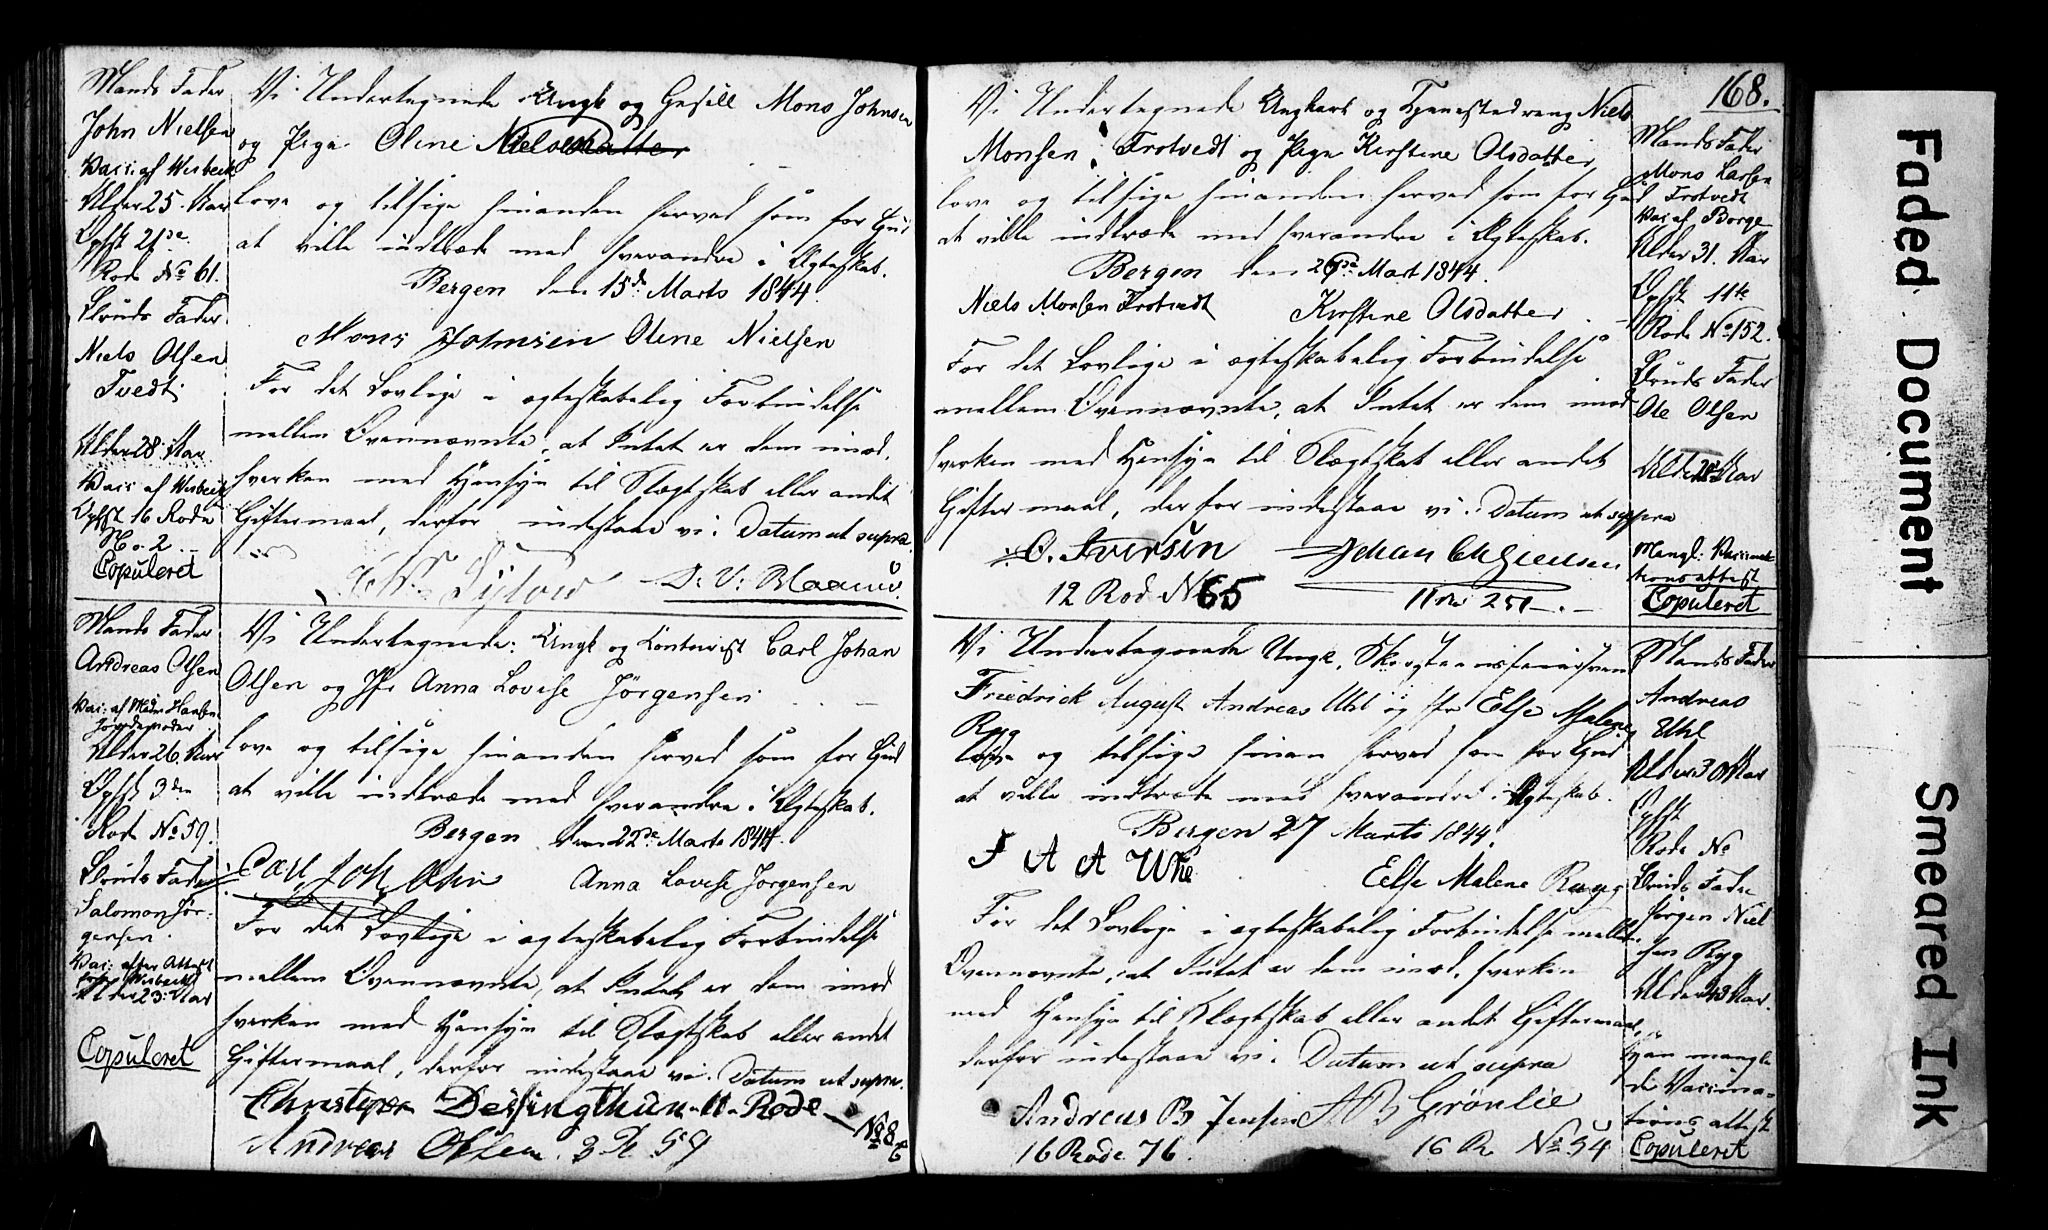 Mands Fader
John Nielsen
Vacc: af Wisbeck
Alder 25 Aar
Opfst 21de
Rode No 61.
Bruds Fader
Niels Olsen
Tvedt
Alder 28 Aar
Vacc af Wisbeck
Opfst 16 Rode
No 2
Copuleret
Vi Undertegnede Ungk og Gesell Mons Johnsen
og Pige Oline Nielsdatter
love og tilsige hinanden herved som for Gud
at ville indtræde med hverandre i Ægteskab.
Bergen den 15de Marts 1844.
Mons Johnsen Oline Nielsen
For det Lovlige i ægteskabelig Forbindelse
mellem Ovennævnte, at Intet er dem imod,
hverken med Hensyn til Slægtskab eller andet
Giftermaal, derfor indestaae vi. Datum ut supra.
Mands Fader
Andreas Olsen
Vacc: af Madm Hansen
Jordemoder
Alder 26 Aar
Opfst 3die
Rode No 59.
Bruds Fader
Salomon Jör-
gensen.
Vac: efter Attest
Wisbeck
Alder 23 Aar
Copuleret
Vi Undertegnede: Ungk og Contorist Carl Johan
Olsen og Jfr Anna Lovise Jörgensen
love og tilsige hinanden herved som for Gud
at ville indtræde med hverandre i Ægteskab.
Bergen den 22de Marts 1844.
Carl Joh Olsen Anna Lovise Jorgensen
For det Lovlige i ægteskabelig Forbindelse
mellem Ovennævnte, at Intet er dem imod
hverken med Hensyn til Slægtskab eller andet
Giftermaal, derfor indestaae vi. Datum ut supra.
Rode No 8
Andreas Olsen 3 R 59
168.
Vi Undertegnede Ungkarl og Tjenestedreng Niels
Monsen Trotvedt og Pige Kirstene Olsdatter
love og tilsige hinanden herved som for Gud
at ville indtræde med hverandre i Ægteskab.
Bergen den 26de Mart 1844.
Niels Monsen Trotvedt Kirstene Olsdatter
For det Lovlige i ægteskabelig Forbindelse
mellem Ovennævnte, at Intet er dem imod
hverken med Hensyn til Slægtskab eller andet
Giftermaal, derfor indestaae vi. Datum ut supra
O. Iversen Johan
12 Rod No 65 11 R 251
Mands Fader
Mons Larsen
Trotvedt
Vac af Borge
Alder 31. Aar
Opfst 11te
Rode No 152.
Bruds Fader
Ole Olsen
Alder Aar
Mangl: Vaccina-
tionsattest
Copuleret
Vi Undertegnede Ungk. Skorsteensfeiersvend
Friedrick August Andreas Uhl og Jfr Else Malene
Ryg
love og tilsige hinan herved som for Gud
at ville indtræde med hverandre i Ægteskab.
Bergen 27 Marts 1844.
F A A Uhl
Else Malene Ryg
For det Lovlige i ægteskabelig Forbindelse mellem
Ovennævnte, at Intet er dem imod, hverken
med Hensyn til Slægtskab eller andet Giftermaal,
derfor indestaae vi. Datum ut supra
Andreas B Jensen A B Grönlie
16 Rode 76. 16 R No 54
Mands Fader
Andreas
Uhl
Alder 30 Aar
Opfst
Rode No
Bruds Fader
Jörgen Niel
sen Ryg
Alder Aar
mangle
de Vaccina-
tions attest
Copuleret
Faded Document
Smeared Ink